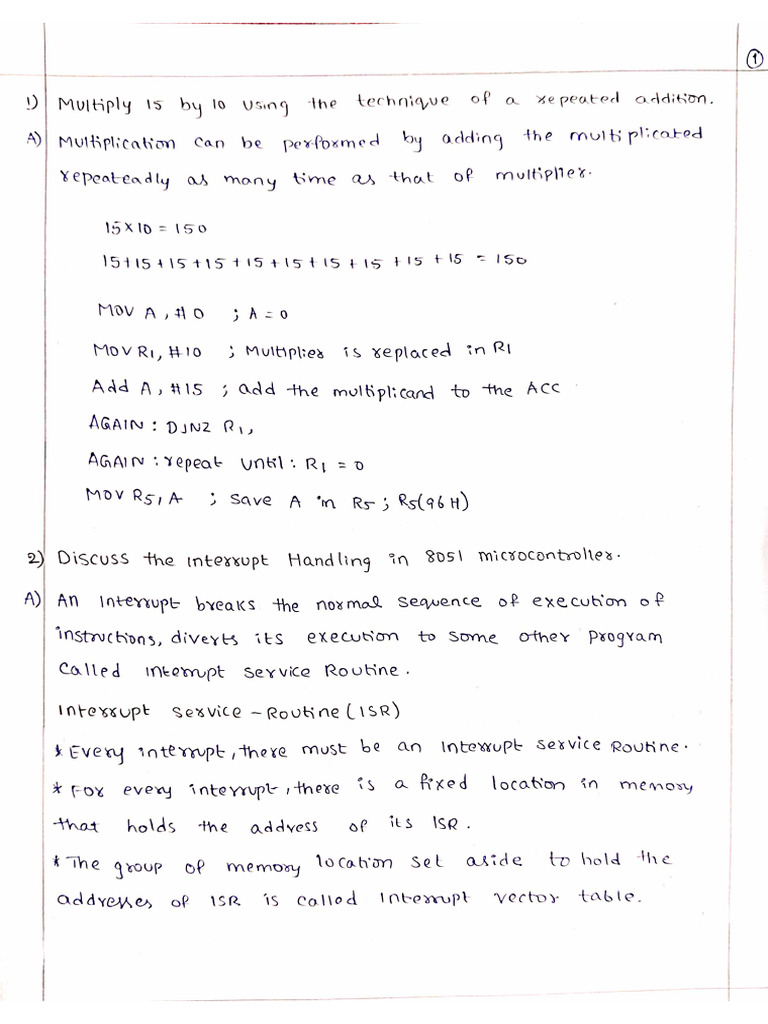 1
1) Multiply 15 by 10 using the technique of a repeated addition.
A) Multiplication can be performed by adding the multiplicated
repeateadly as many time as that of multiplier.
15×10 = 150
15+15+15+15+15+15+15+15+15+15 = 150
MOV A, #0 ; A=0
MOV R1, #10 ; Multiplier is replaced in R1
Add A, #15 ; add the multiplicand to the ACC
AGAIN: DJNZ R1,
AGAIN: repeat until: R1 = 0
MOV R5, A ; save A in R5; R5(96H)
2) Discuss the interrupt Handling in 8051 microcontroller.
A) An Interrupt breaks the normal sequence of execution of
instructions, diverts its execution to some other program
called interrupt service Routine.
Interrupt service-Routine (ISR)
* Every interrupt, there must be an Interrupt service Routine.
* For every interrupt, there is a fixed location in memory
that holds the address of its ISR.
* The group of memory location set aside to hold the
addresses of ISR is called Interrupt vector table.